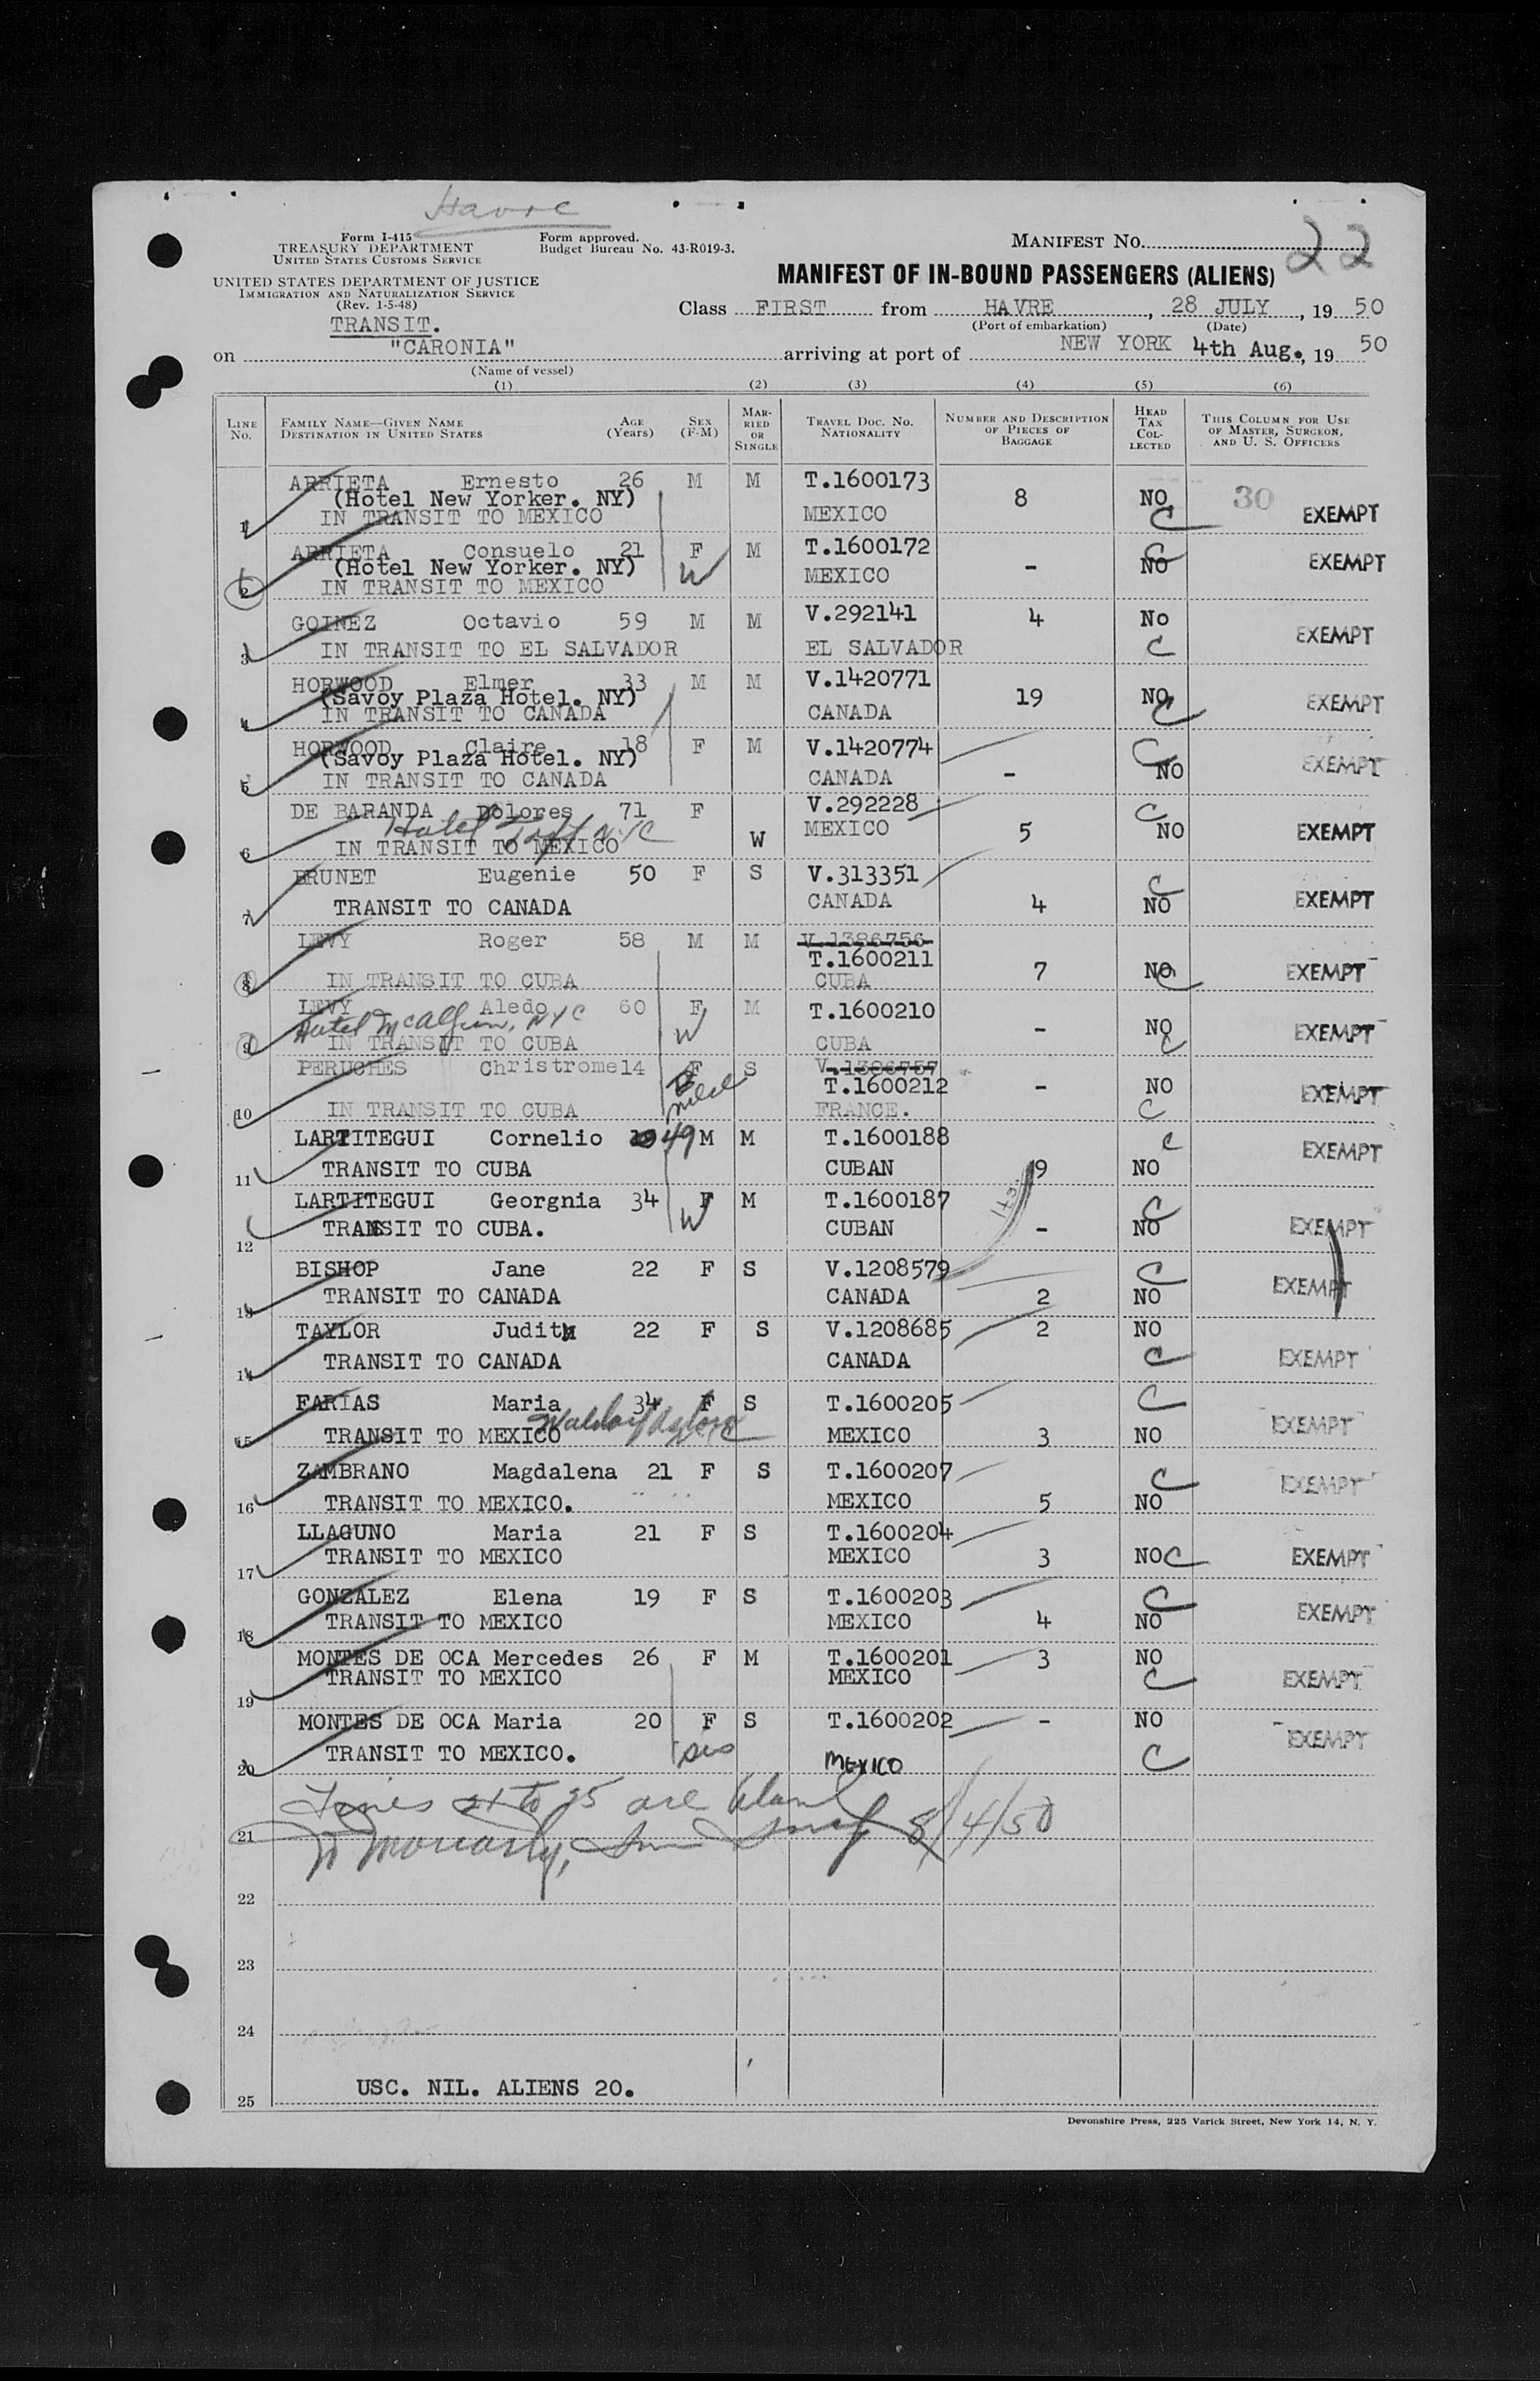 Havre
Form I-415
TREASURY DEPARTMENT
UNITED STATES CUSTOMS SERVICE
Form approved.
Budget Bureau No. 43-R019-3.
MANIFEST No. 22
UNITED STATES DEPARTMENT OF JUSTICE
IMMIGRATION AND NATURALIZATION SERVICE
(Rev. 1-5-48)
MANIFEST OF IN-BOUND PASSENGERS (ALIENS)
Class FIRST from HAVRE, 28 JULY, 19 50
(Port of embarkation) (Date)
TRANSIT.
on "CARONIA" arriving at port of NEW YORK 4th Aug., 19 50
(Name of vessel)
(1) (2) (3) (4) (5) (6)
LINE No. FAMILY NAME—GIVEN NAME DESTINATION IN UNITED STATES AGE (Years) SEX (F-M) MARRIED OR SINGLE TRAVEL DOC. NO. NATIONALITY NUMBER AND DESCRIPTION OF PIECES OF BAGGAGE HEAD TAX COLLECTED THIS COLUMN FOR USE OF MASTER, SURGEON, AND U. S. OFFICERS
ARRIETA Ernesto 26 M M T.1600173
(Hotel New Yorker. NY) 8 NO 30
1 IN TRANSIT TO MEXICO MEXICO C EXEMPT
ARRIETA Consuelo 21 F M T.1600172 C
(Hotel New Yorker. NY) W - NO EXEMPT
2 IN TRANSIT TO MEXICO MEXICO
GOINEZ Octavio 59 M M V.292141 4 No
3 IN TRANSIT TO EL SALVADOR EL SALVADOR C EXEMPT
HORWOOD Elmer 33 M M V.1420771
(Savoy Plaza Hotel. NY) 19 NO EXEMPT
4 IN TRANSIT TO CANADA CANADA C
HORWOOD Claire 18 F M V.1420774 C
(Savoy Plaza Hotel. NY) - NO EXEMPT
5 IN TRANSIT TO CANADA CANADA
DE BARANDA Dolores 71 F V.292228 C
Hotel Taft NYC MEXICO 5 NO EXEMPT
6 IN TRANSIT TO MEXICO W
BRUNET Eugenie 50 F S V.313351 C
7 TRANSIT TO CANADA CANADA 4 NO EXEMPT
LEVY Roger 58 M M V.1386756
T.1600211 7 NO EXEMPT
8 IN TRANSIT TO CUBA CUBA C
LEVY Aledo 60 F M T.1600210
Hotel McAlpin, NYC W - NO EXEMPT
9 IN TRANSIT TO CUBA CUBA C
PERUCHES Christrome 14 F S V.1386757
T.1600212 - NO EXEMPT
10 IN TRANSIT TO CUBA FRANCE. C
LARTITEGUI Cornelio 49 M M T.1600188 C
11 TRANSIT TO CUBA CUBAN 9 NO EXEMPT
LARTITEGUI Georgnia 34 F M T.1600187 C
12 TRANSIT TO CUBA. W CUBAN - NO EXEMPT
BISHOP Jane 22 F S V.1208579 C
13 TRANSIT TO CANADA CANADA 2 NO EXEMPT
TAYLOR Judith 22 F S V.1208685 2 NO
14 TRANSIT TO CANADA CANADA C EXEMPT
FARIAS Maria 34 F S T.1600205 C
15 TRANSIT TO MEXICO Waldorf Astoria MEXICO 3 NO EXEMPT
ZAMBRANO Magdalena 21 F S T.1600207 C
16 TRANSIT TO MEXICO. MEXICO 5 NO EXEMPT
LLAGUNO Maria 21 F S T.1600204
17 TRANSIT TO MEXICO MEXICO 3 NO C EXEMPT
GONZALEZ Elena 19 F S T.1600203 C
18 TRANSIT TO MEXICO MEXICO 4 NO EXEMPT
MONTES DE OCA Mercedes 26 F M T.1600201 3 NO
19 TRANSIT TO MEXICO MEXICO C EXEMPT
MONTES DE OCA Maria 20 F S T.1600202 - NO EXEMPT
20 TRANSIT TO MEXICO. sis MEXICO C
Lines 21 to 25 are blank
21 Moriarty, 8/4/50
22
23
24
25 USC. NIL. ALIENS 20.
Devonshire Press, 225 Varick Street, New York 14, N. Y.